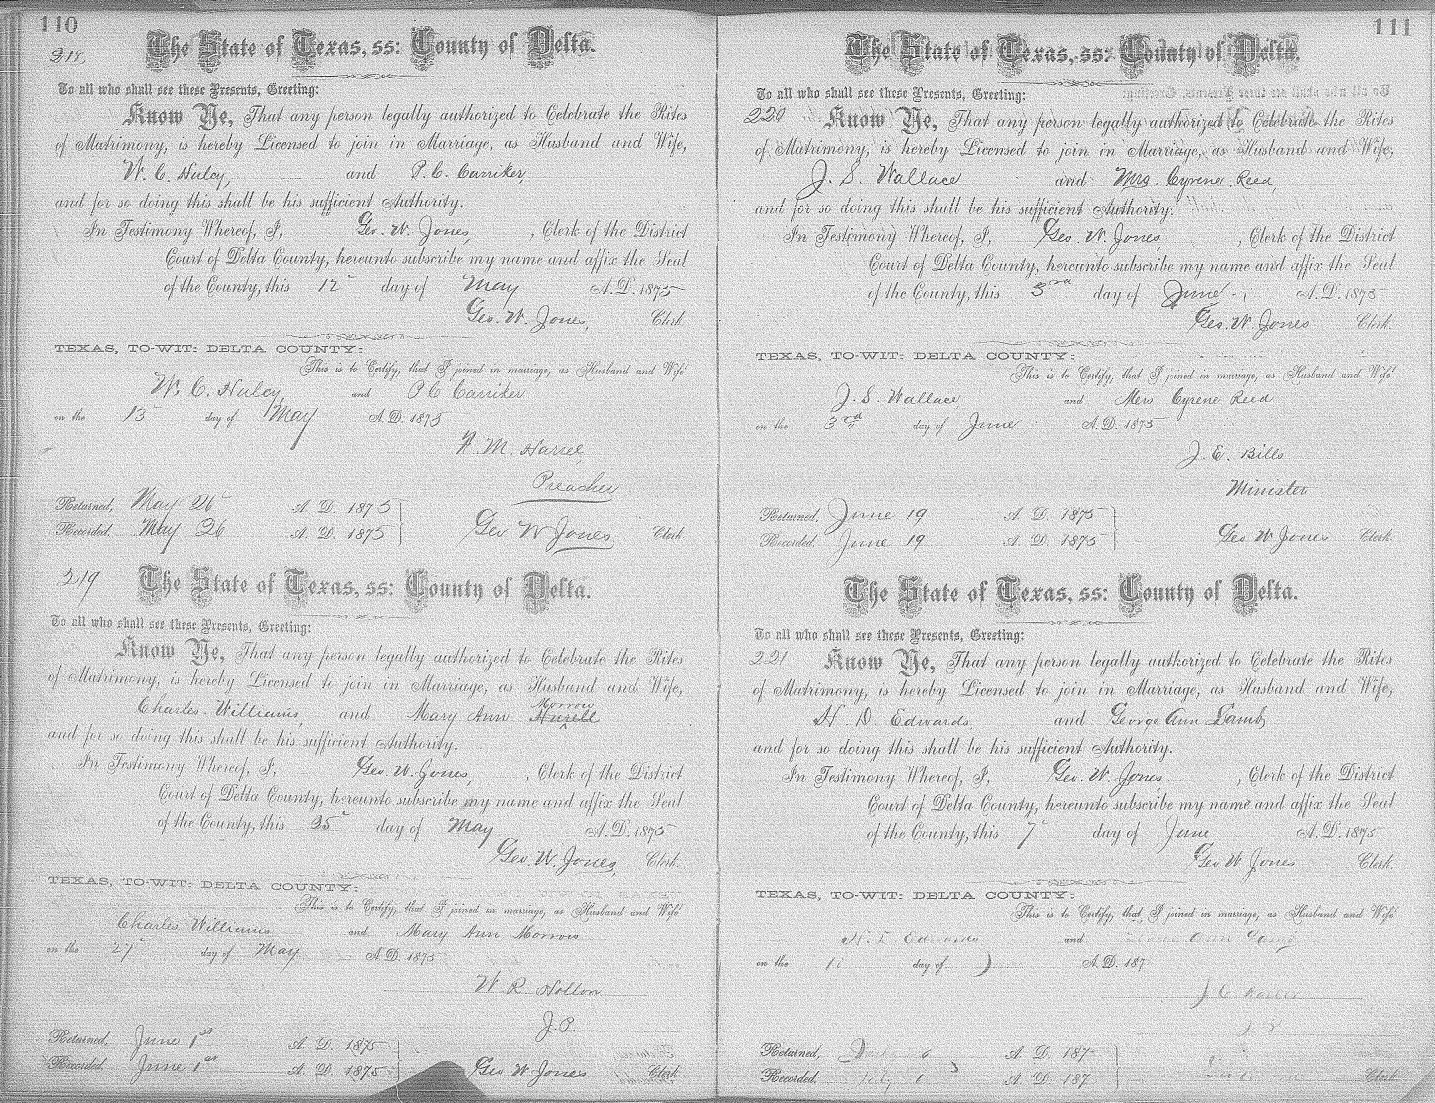 110
218
The State of Texas, ss: County of Delta.
To all who shall see these Presents, Greeting:
Know Ye, That any person legally authorized to Celebrate the Rites
of Matrimony, is hereby Licensed to join in Marriage, as Husband and Wife,
W. C. and P. C. Carriker,
and for so doing this shall be his sufficient Authority.
In Testimony Whereof, I, Geo. W. Jones, , Clerk of the District
Court of Delta County, hereunto subscribe my name and affix the Seal
of the County, this 12 day of May A.D. 1875
Geo. W. Jones, Clerk
TEXAS, TO-WIT: DELTA COUNTY:
This is to Certify, that I joined in marriage, as Husband and Wife
W. C. and P C Carriker
on the 13 day of May A.D. 1875
M.
Preacher
Returned, May 26 A. D. 1875
Recorded. May 26 A. D. 1875 Geo W Jones Clerk
219 The State of Texas, ss: County of Delta.
To all who shall see these Presents, Greeting:
Know Ye, That any person legally authorized to Celebrate the Rites
of Matrimony, is hereby Licensed to join in Marriage, as Husband and Wife,
Morrow
Charles Williams, and Mary Ann
and for so doing this shall be his sufficient Authority.
In Testimony Whereof, I, Geo. W. Jones, , Clerk of the District
Court of Delta County, hereunto subscribe my name and affix the Seal
of the County, this 25 day of May A.D. 1875
Geo. W. Jones, Clerk.
TEXAS, TO-WIT: DELTA COUNTY:
This is to Certify, that I joined in marriage, as Husband and Wife
Charles Williams and Mary Ann Morrow
on the 27 day of May A.D. 1875
W R Hollon
J.P.
Returned, June 1st A. D. 1875
Recorded. June 1st A. D. 1875 Geo W Jones Clerk.
111
The State of Texas, ss: County of Delta.
To all who shall see these Presents, Greeting:
220 Know Ye, That any person legally authorized to Celebrate the Rites
of Matrimony, is hereby Licensed to join in Marriage, as Husband and Wife,
J. S. Wallace and Mrs. Cyrene Reed,
and for so doing this shall be his sufficient Authority.
In Testimony Whereof, I, Geo. W. Jones , Clerk of the District
Court of Delta County, hereunto subscribe my name and affix the Seal
of the County, this 3rd day of June A.D. 1875
Geo. W Jones Clerk.
TEXAS, TO-WIT: DELTA COUNTY:
This is to Certify, that I joined in marriage, as Husband and Wife
J. S. Wallace and Mrs Cyrene Reed
on the 3rd day of June A.D. 1875
J. E. Bills
Minister
Returned, June 19 A. D. 1875
Recorded. June 19 A. D. 1875 Geo W Jones Clerk.
The State of Texas, ss: County of Delta.
To all who shall see these Presents, Greeting:
221 Know Ye, That any person legally authorized to Celebrate the Rites
of Matrimony, is hereby Licensed to join in Marriage, as Husband and Wife,
H. D. Edwards and George Ann Lamb
and for so doing this shall be his sufficient Authority.
In Testimony Whereof, I, Geo. W. Jones, , Clerk of the District
Court of Delta County, hereunto subscribe my name and affix the Seal
of the County, this 7 day of June A.D. 1875
Geo W Jones Clerk.
TEXAS, TO-WIT: DELTA COUNTY:
This is to Certify, that I joined in marriage, as Husband and Wife
Edwards and Ann
on the day of A.D. 187
J. C.
Returned, 6 A. D. 187
Recorded. A. D. 187 Clerk